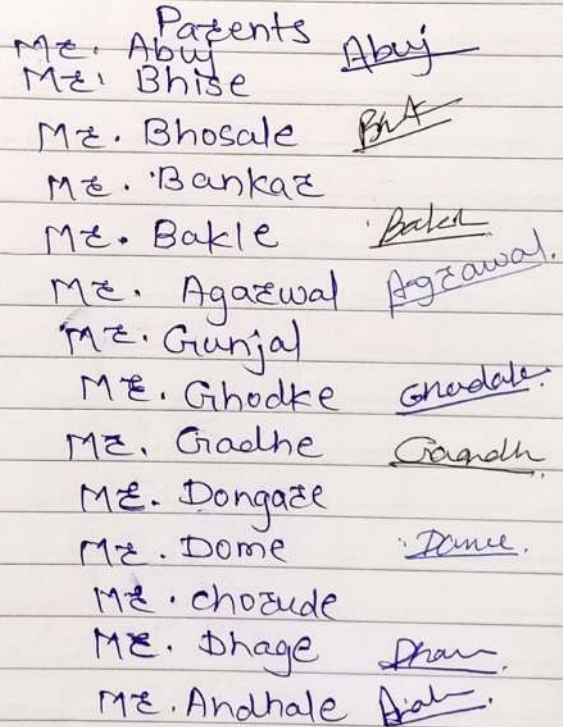 Parents
Mr. Abuj Abuj
Mr. Bhise
Mr. Bhosale
Mr. Bankar
Mr. Bakle
Mr. Agarwal Agrawal.
Mr. Gunjal
Mr. Ghodke
Mr. Gadhe
Mr. Dongare
Mr. Dome
Mr. chorude
Mr. Dhage
Mr. Andhale